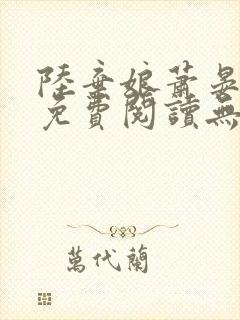 陸棄娘蕭晏
免費閱讀無
萬代蘭